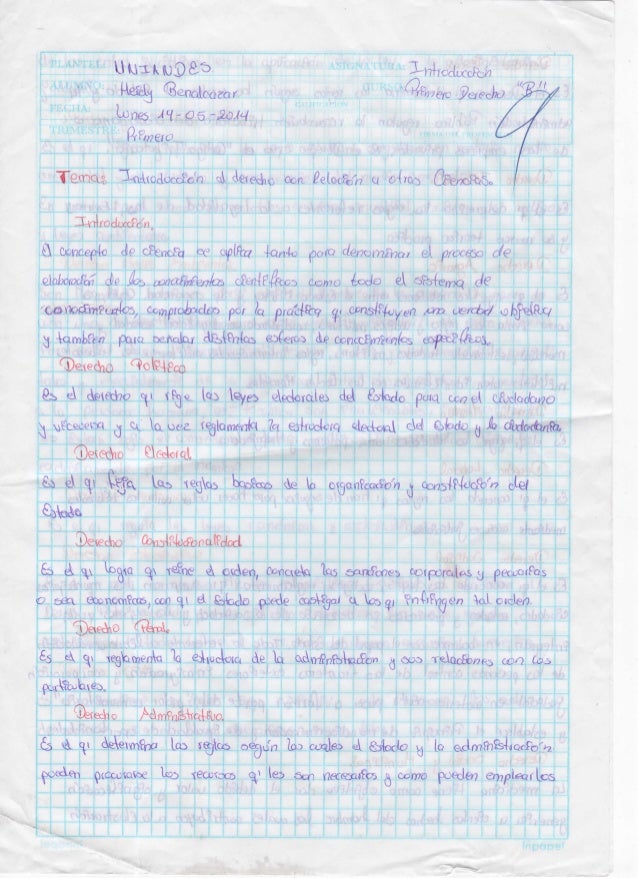 PLANTEL: UNIANDES ASIGNATURA: Introducción
ALUMNO: Heidy Benalcazar CURSO: Primero Derecho "B"
FECHA: lunes 19-05-2014 CALIFICACIÓN
TRIMESTRE: Primero
9
Tema: Introducción al derecho con Relación a otras Ciencias.
Introducción.
El concepto de ciencia se aplica tanto para denominar el proceso de
elaboración de los conocimientos científicos como todo el sistema de
conocimientos, comprobados por la práctica q' constituyen una verdad objetiva
y también para señalar distintas esferas de conocimientos específicos.
Derecho Político
es el derecho q' rige las leyes electorales del Estado para con el ciudadano
y viceversa y a la vez reglamenta la estructura electoral del estado y la ciudadanía.
Derecho Electoral
Es el q' fija las reglas basicas de la organización y constitución del
Estado
Derecho Constitucionalidad
Es el q' logra q' reine el orden, concreta las sanciones corporales y pecuarias
o sea economicas, con q' el Estado puede castigar a los q' infringen tal orden.
Derecho Penal
Es el q' reglamenta la estructura de la administracion y sus relaciones con los
particulares.
Derecho Administrativo.
Es el q' determina las reglas según las cuales el Estado y la administración
pueden procurarse los recursos q' les son necesarios y como pueden emplearlos
Inpapel